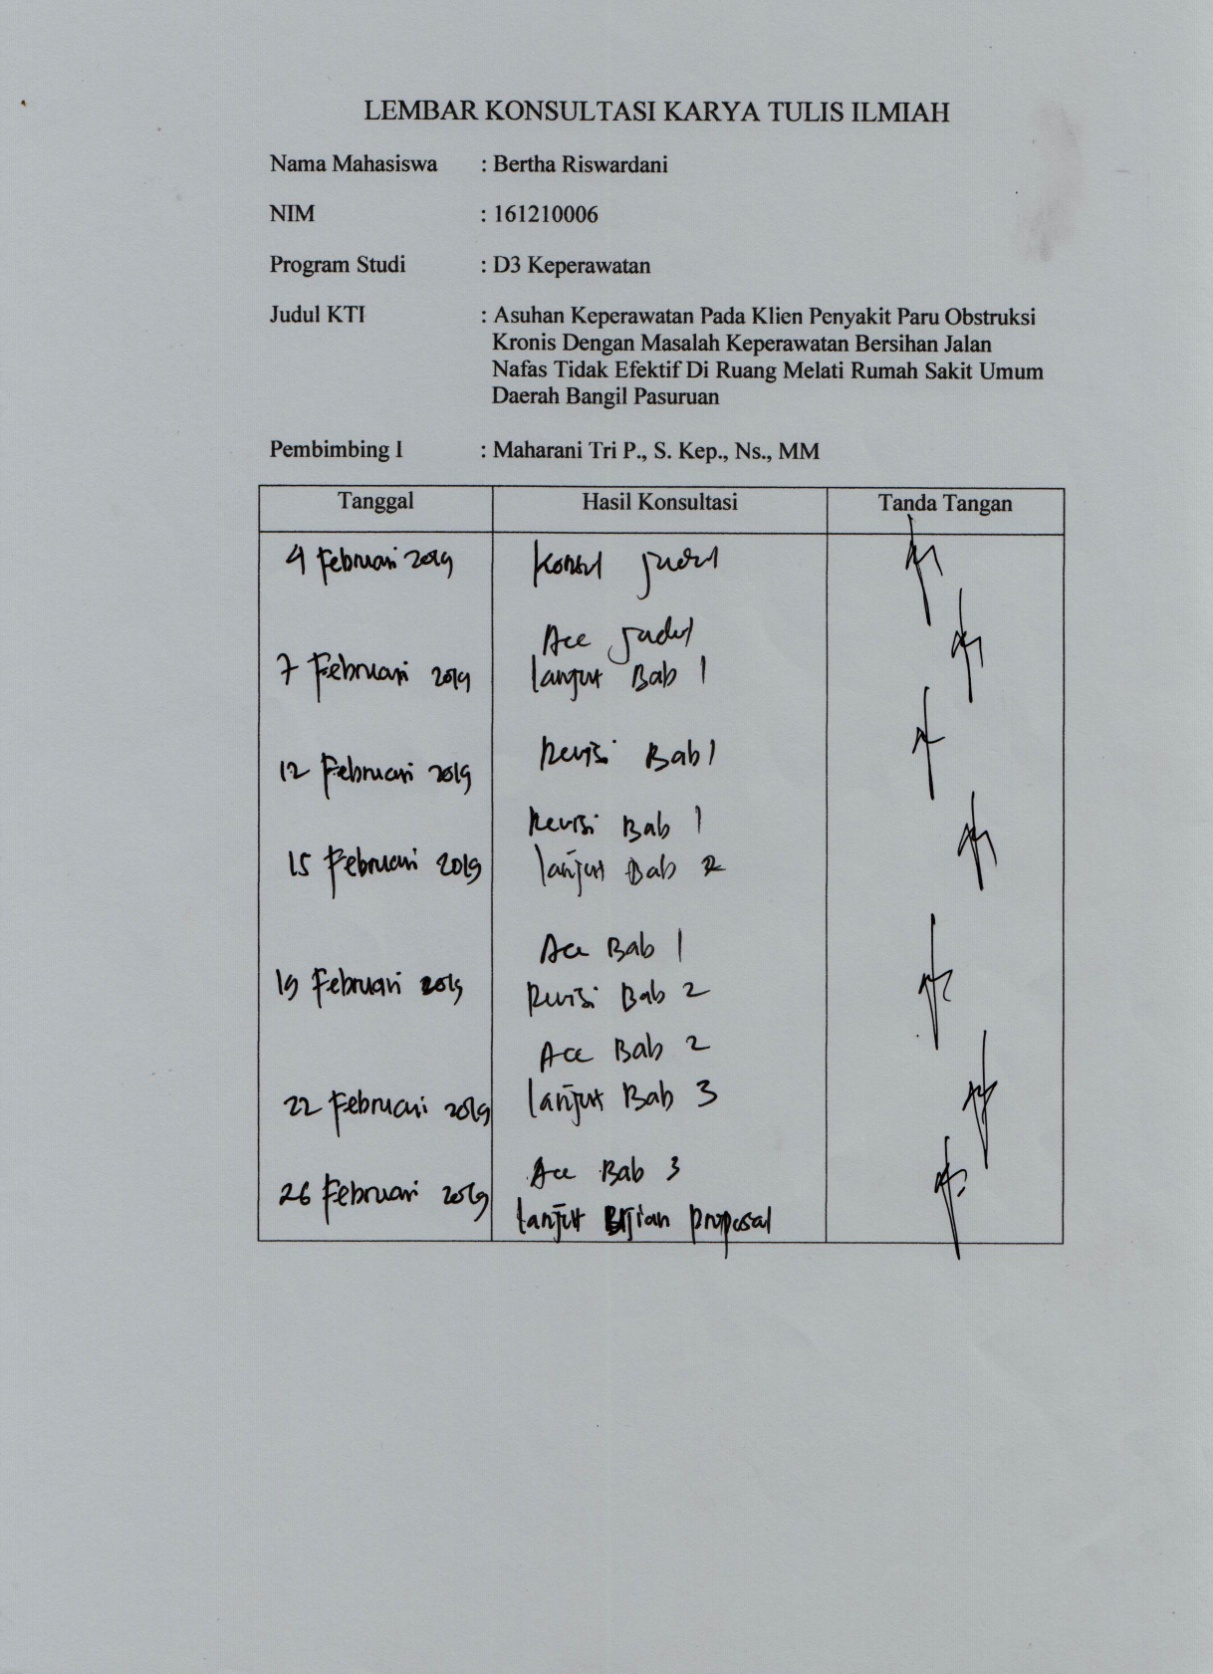 LEMBAR KONSULTASI KARYA TULIS ILMIAH
Nama Mahasiswa : Bertha Riswardani
NIM : 161210006
Program Studi : D3 Keperawatan
Judul KTI : Asuhan Keperawatan Pada Klien Penyakit Paru Obstruksi
Kronis Dengan Masalah Keperawatan Bersihan Jalan
Nafas Tidak Efektif Di Ruang Melati Rumah Sakit Umum
Daerah Bangil Pasuruan
Pembimbing I : Maharani Tri P., S. Kep., Ns., MM
Tanggal Hasil Konsultasi Tanda Tangan
4 Februari 2019 Konsul judul
Acc Judul
7 Februari 2019 lanjut Bab 1
12 Februari 2019 Revisi Bab 1
Revisi Bab 1
15 Februari 2019 lanjut Bab 2
Acc Bab 1
19 Februari 2019 Revisi Bab 2
Acc Bab 2
22 Februari 2019 lanjut Bab 3
Acc Bab 3
26 Februari 2019 lanjut Ujian proposal